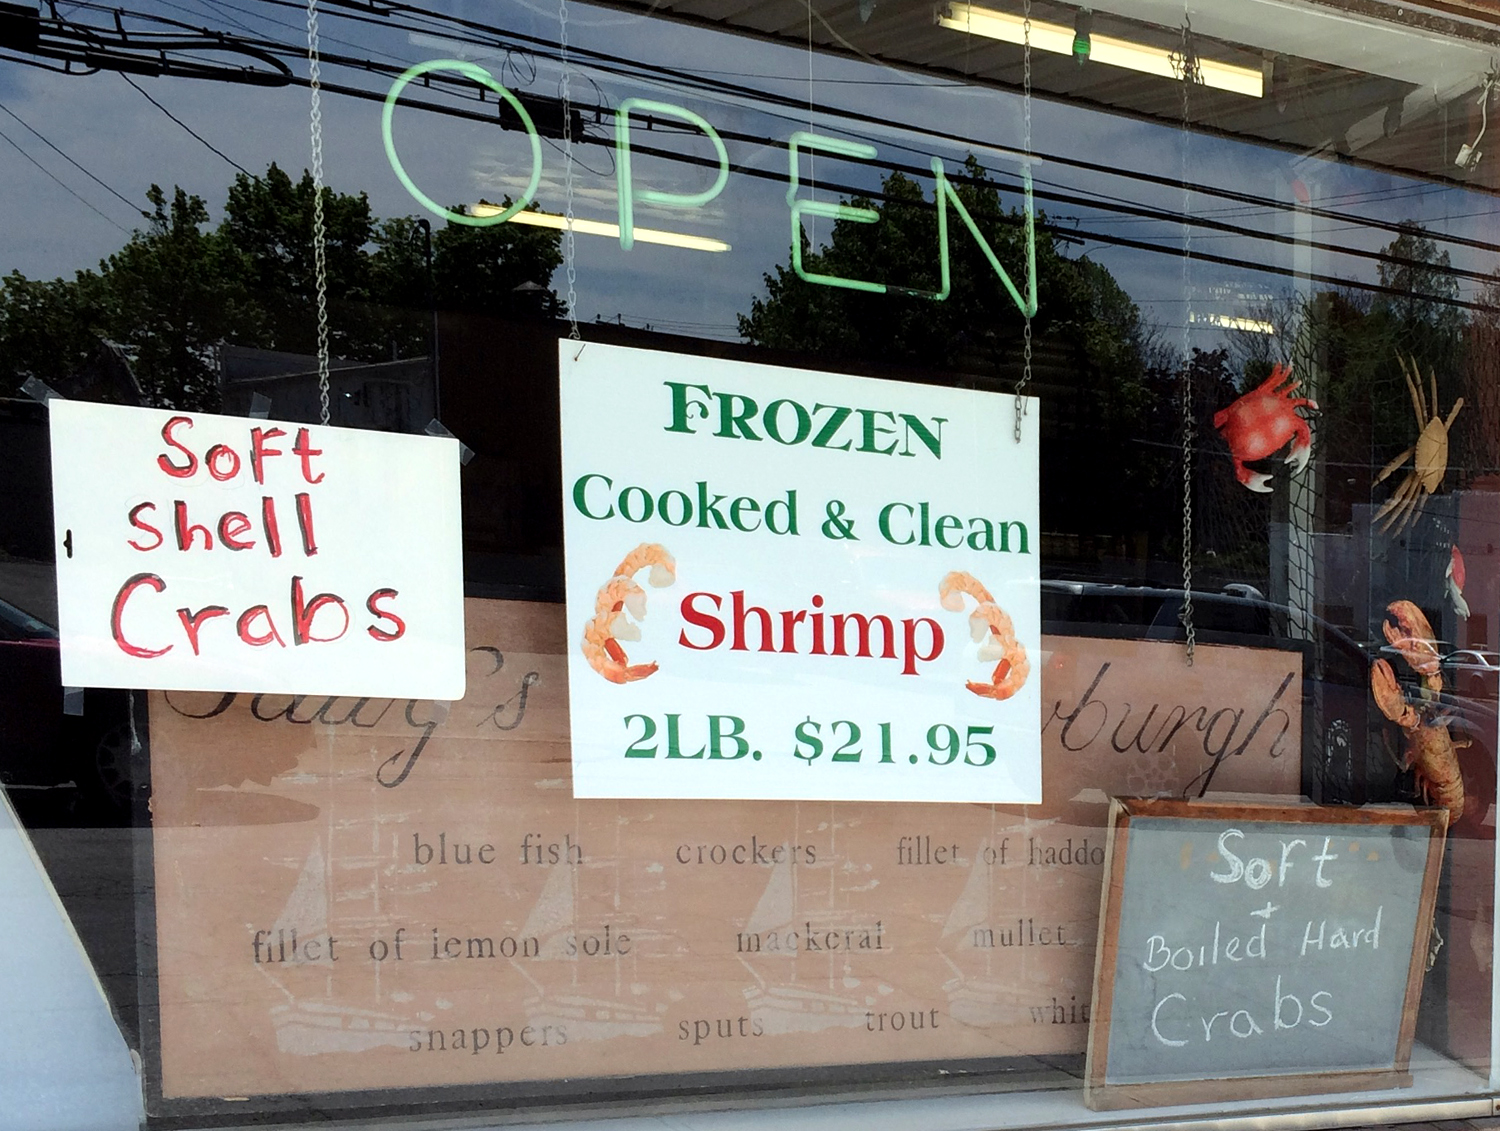 OPEN
Soft
Shell
Crabs
FROZEN
Cooked & Clean
Shrimp
2LB. $21.95
blue fish crockers fillet of haddo
fillet of lemon sole mackeral mullet
snappers sputs trout whit
Soft
+
Boiled Hard
Crabs